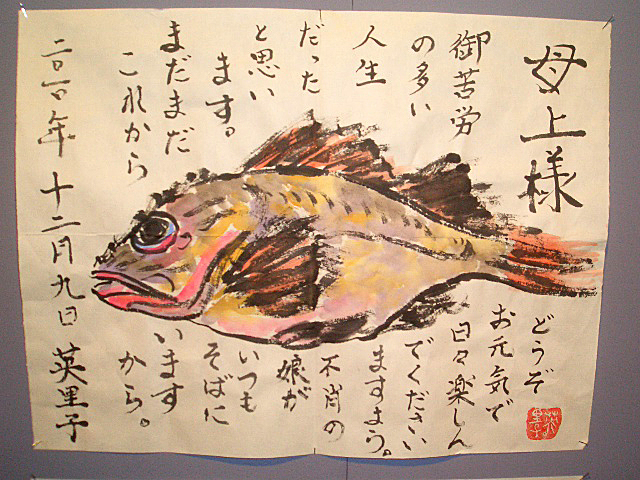 母上様
御苦労
の多い
人生
だった
と思い
ます。
まだまだ
これから
どうぞ
お元気で
日々楽しん
でください
ますよう。
不肖の
娘が
いつも
そばに
います
から。
二〇一〇年 十二月九日 英里子